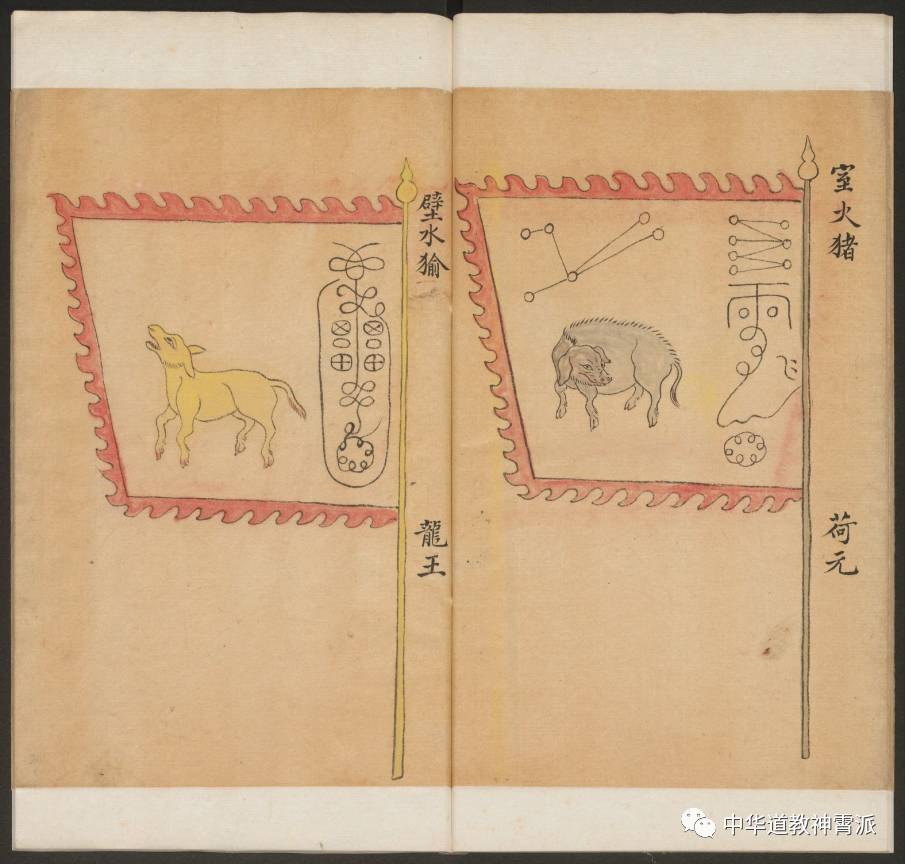 室火猪
荷元
壁水㺄
龍王
中华道教神霄派